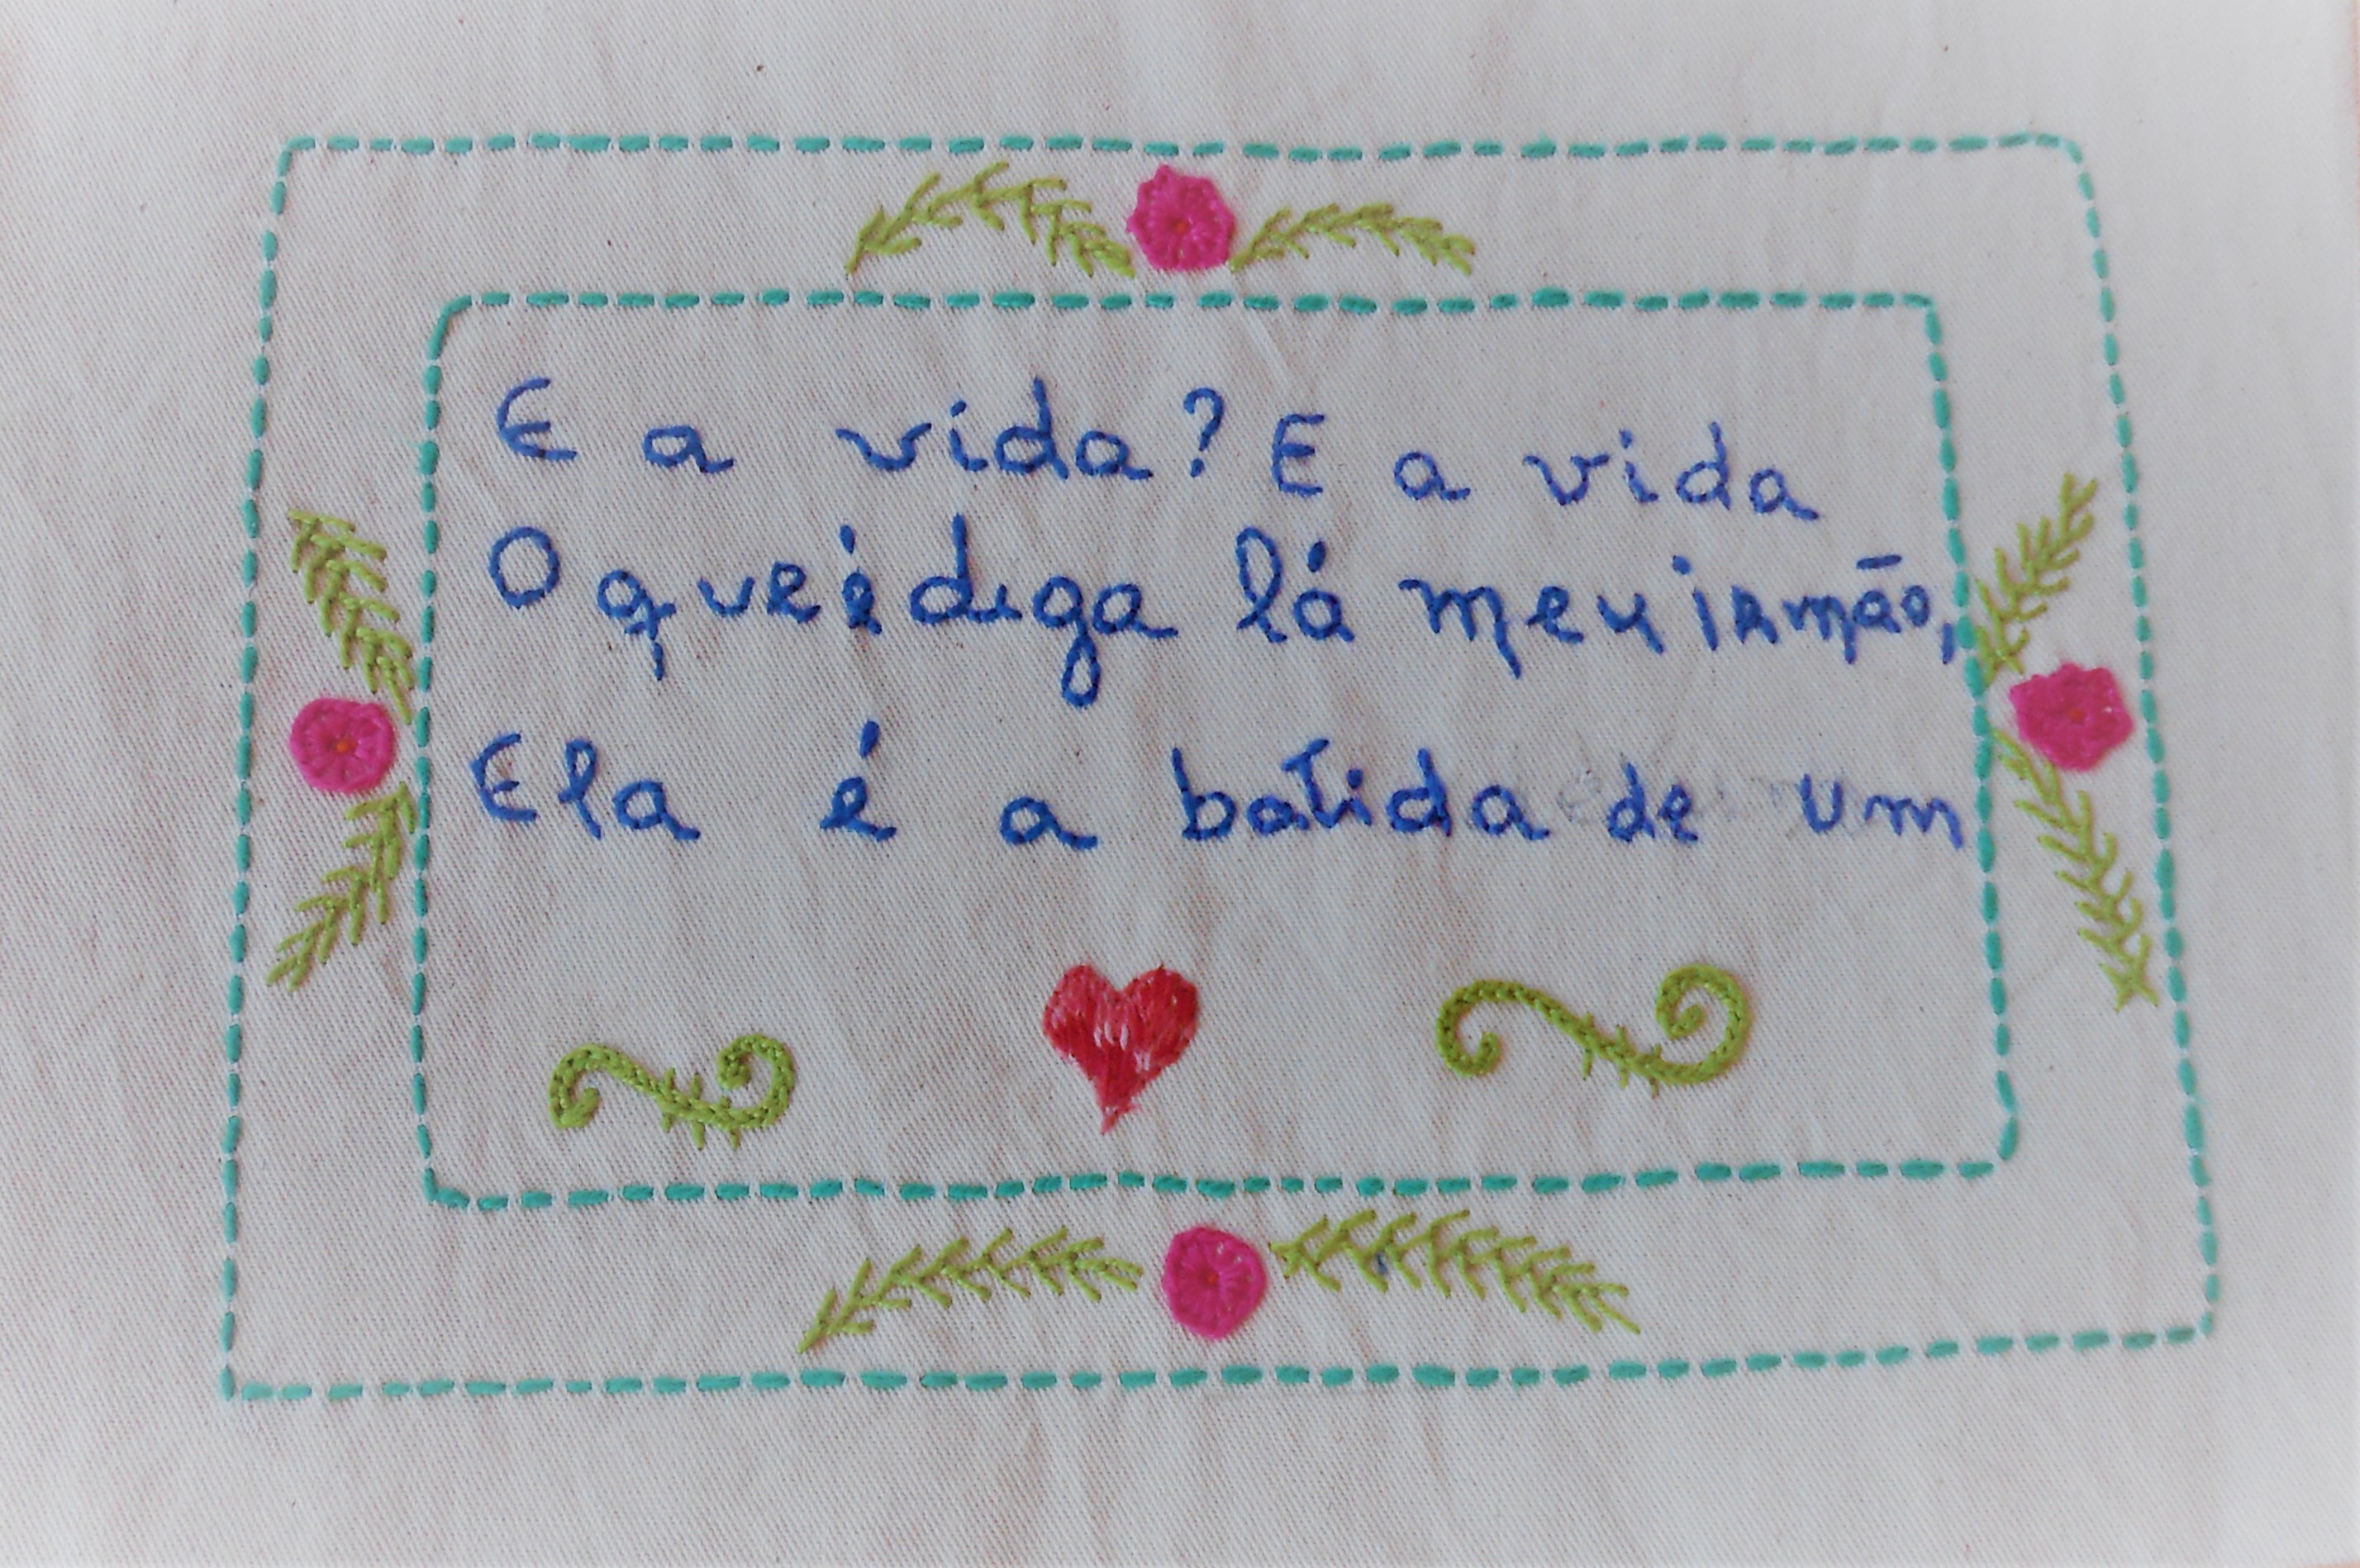 E a vida? E a vida
O que é diga lá meu irmão,
Ela é a batida de um